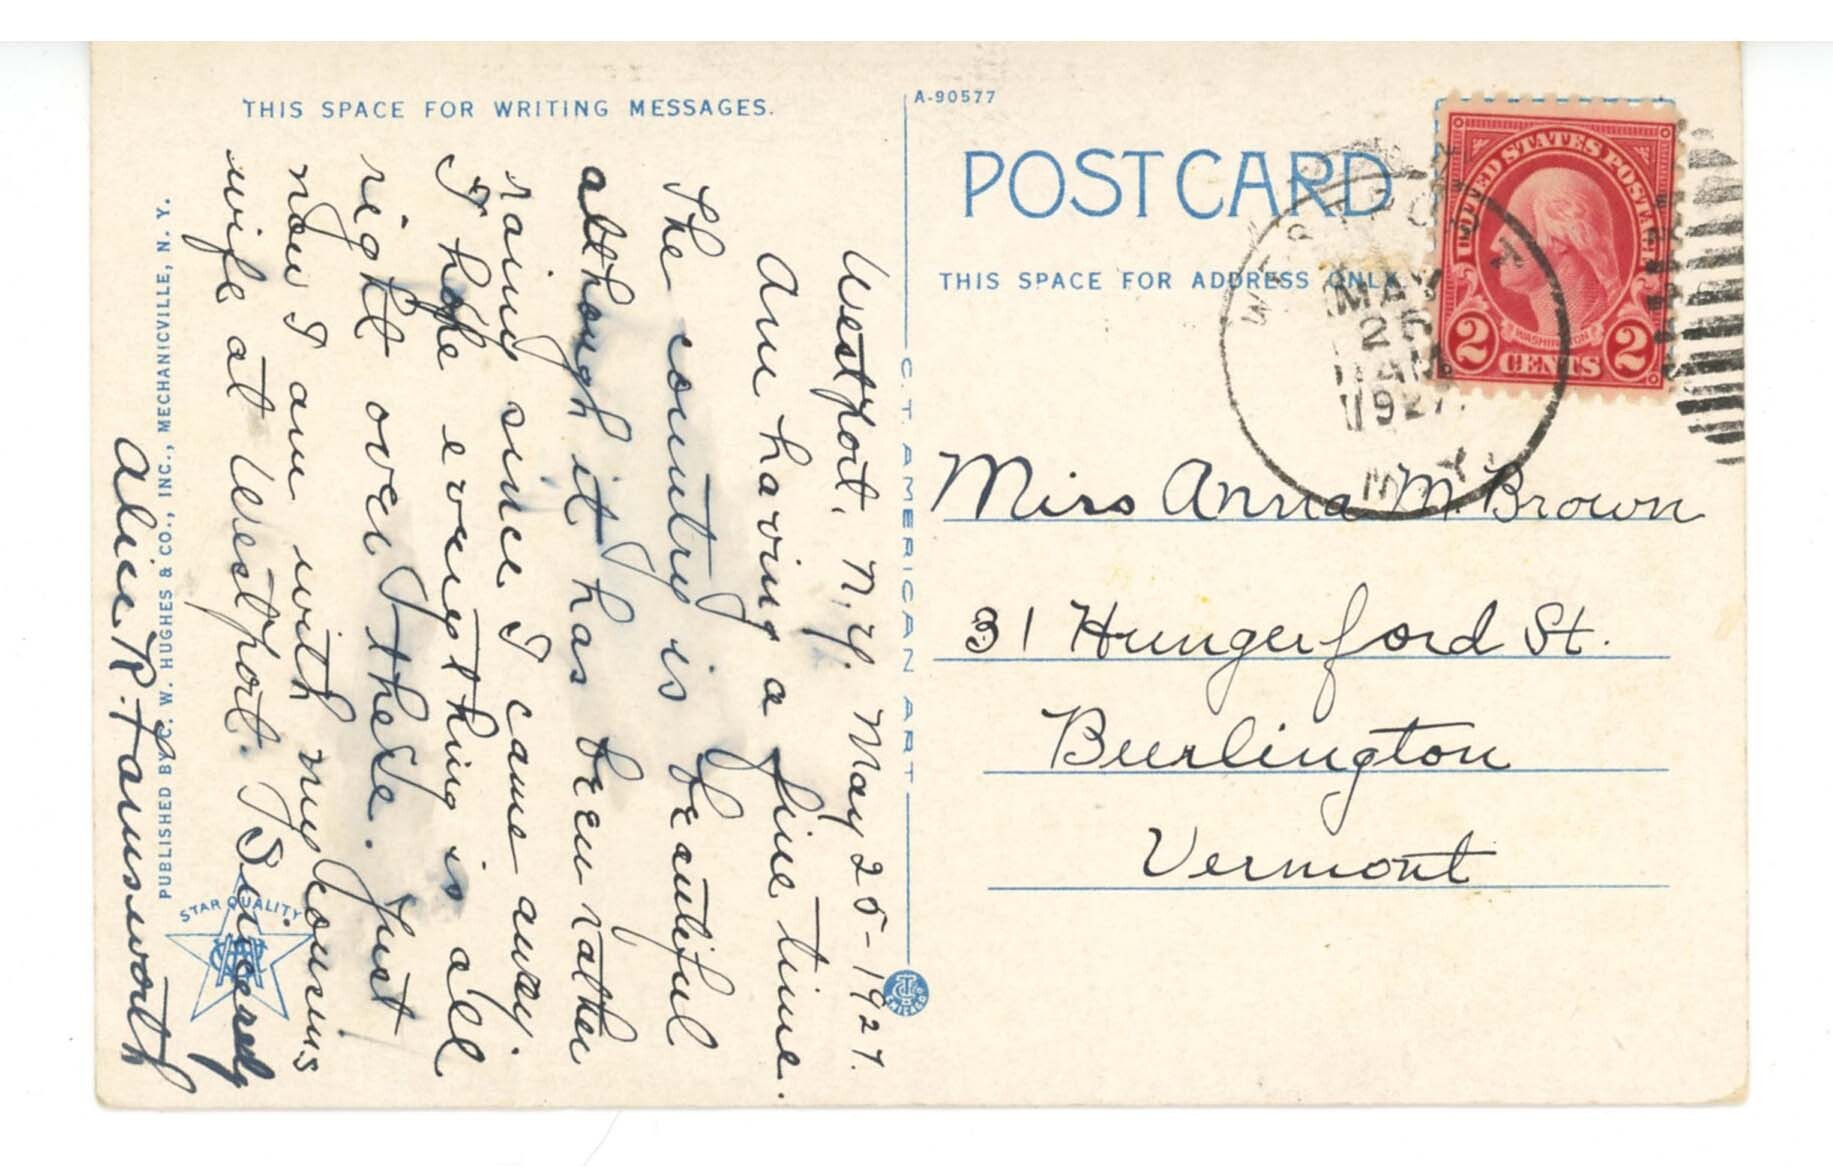 THIS SPACE FOR WRITING MESSAGES.
Westport, N.Y. May 25-1927.
Am having a fine time.
The country is beautiful
although it has been rather
rainy since I came away.
I hope everything is all
right over there. Just
now I am with my cousins
wife at Westport. Sincerely
Alice R. Farnsworth
PUBLISHED BY C. W. HUGHES & CO., INC., MECHANICVILLE, N. Y.
STAR QUALITY
C. T. AMERICAN ART
CHICAGO
A-90577
POST CARD
THIS SPACE FOR ADDRESS ONLY.
WESTPORT
MAY
26
AM
1927
N.Y.
UNITED STATES POSTAGE
WASHINGTON
2 CENTS 2
Miss Anna M. Brown
31 Hungerford St.
Burlington
Vermont